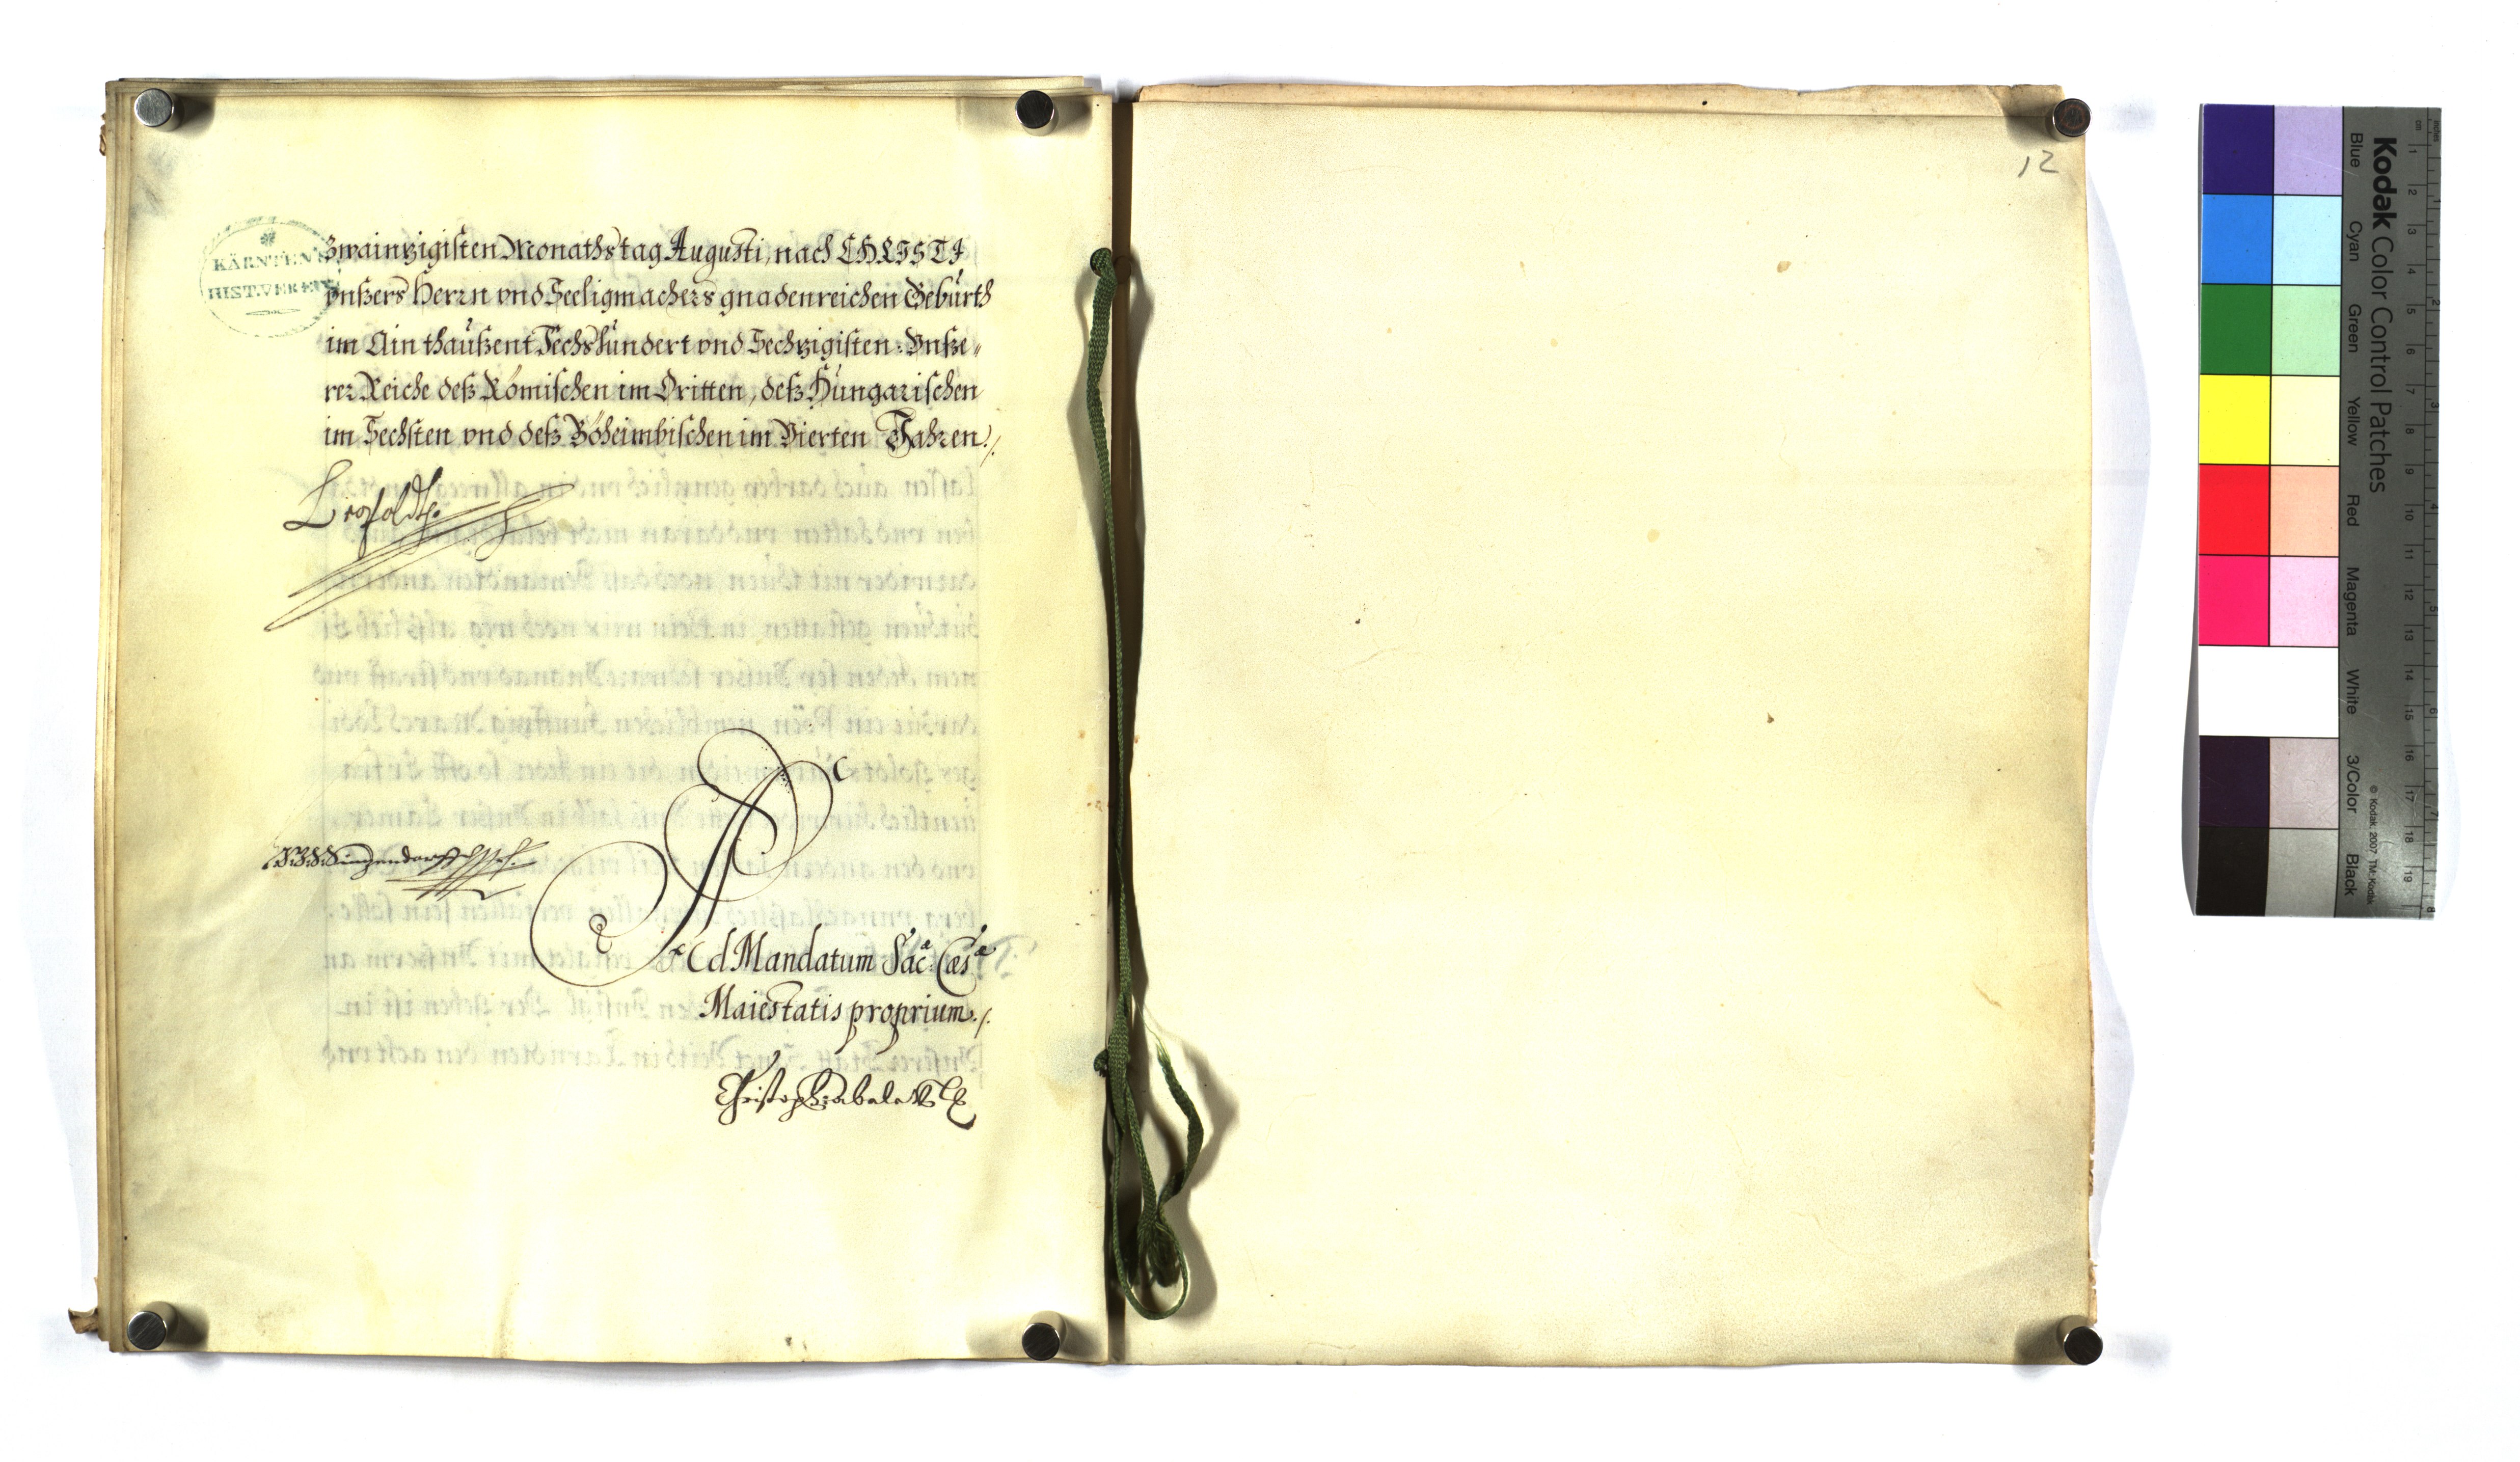 KÄRNTEN'S
HIST. VEREIN
zwainzigisten Monathstag Augusti, nach CHRISTI
vnßers Herrn vnd Seeligmachers gnadenreichen Gebürth
im Ain thaußent Sechshundert vnd Sechzigisten: Vnße„
rer Reiche deß Römischen im Dritten, deß Hungarischen
im Sechsten vnd deß Böheimbischen im Vierten Jahren./.
Leopoldt
Sinzendorff
Ad Mandatum Sac: Caes:
Maiestatis proprium./.
Christoph Abele
12
Kodak Color Control Patches
Blue Cyan Green Yellow Red Magenta White 3/Color Black
© Kodak, 2007 TM: Kodak
cm 1 2 3 4 5 6 7 8 9 10 11 12 13 14 15 16 17 18 19
inches 1 2 3 4 5 6 7 8